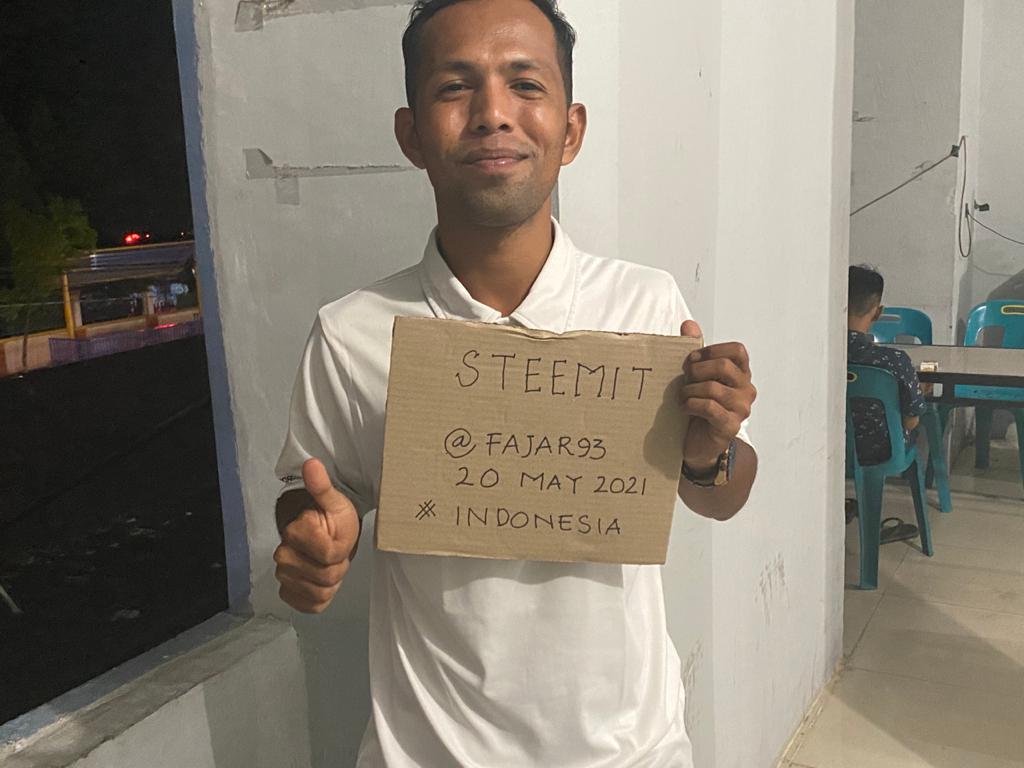 STEEMIT
@FAJAR93
20 MAY 2021
# INDONESIA